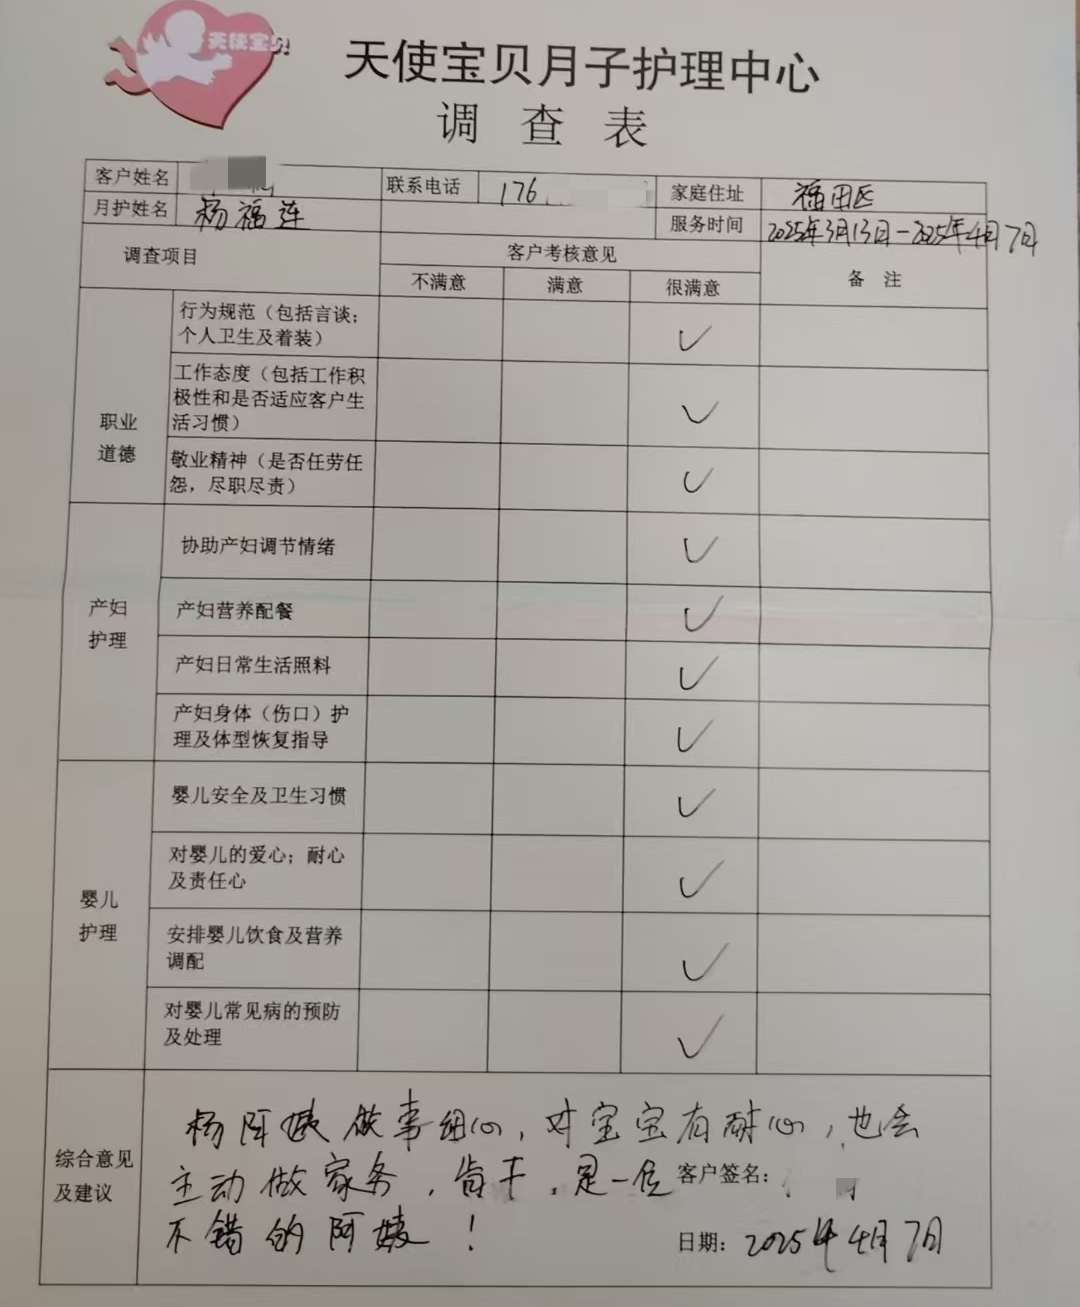 天使宝贝
天使宝贝月子护理中心
调查表
客户姓名 联系电话 176 家庭住址 福田区
月护姓名 杨福连 服务时间 2025年3月13日-2025年4月7日
调查项目 客户考核意见 备注
不满意 满意 很满意
职业
道德
行为规范（包括言谈；
个人卫生及着装） ✓
工作态度（包括工作积
极性和是否适应客户生
活习惯） ✓
敬业精神（是否任劳任
怨，尽职尽责） ✓
产妇
护理
协助产妇调节情绪 ✓
产妇营养配餐 ✓
产妇日常生活照料 ✓
产妇身体（伤口）护
理及体型恢复指导 ✓
婴儿
护理
婴儿安全及卫生习惯 ✓
对婴儿的爱心；耐心
及责任心 ✓
安排婴儿饮食及营养
调配 ✓
对婴儿常见病的预防
及处理 ✓
综合意见
及建议
杨阿姨做事细心，对宝宝有耐心，也会
主动做家务，肯干，是一位
不错的阿姨！
客户签名：
日期：2025年4月7日